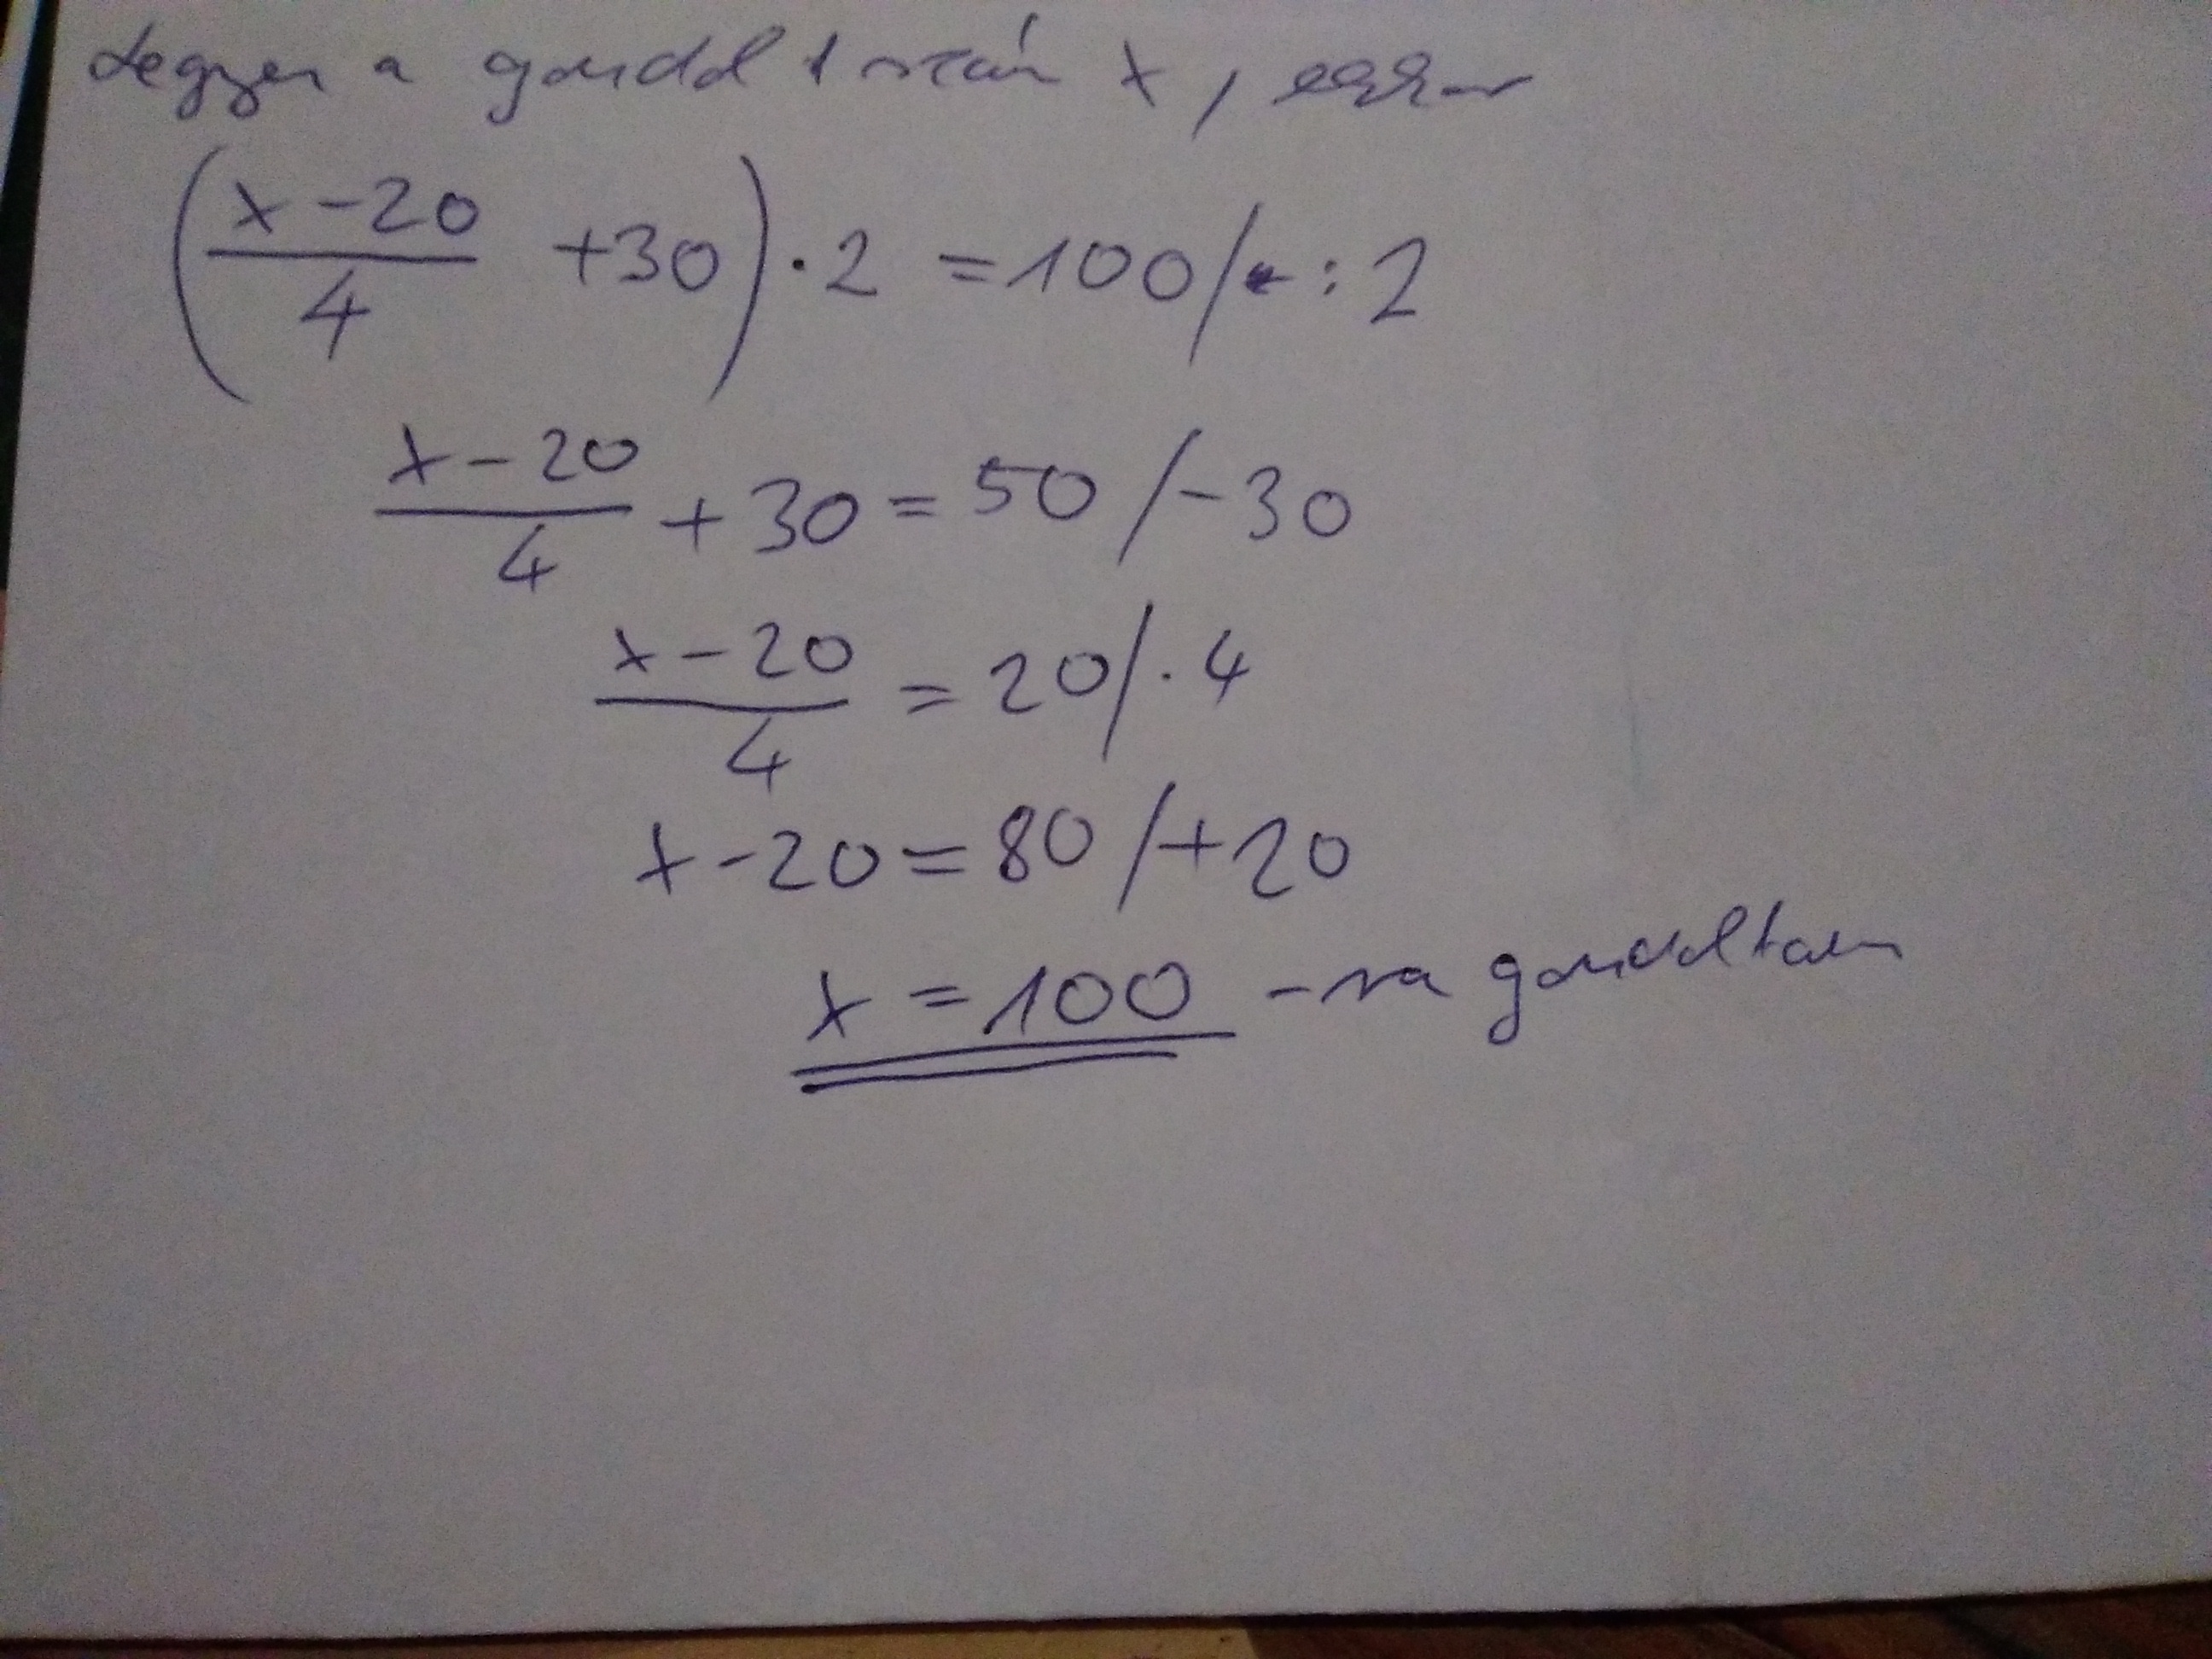 Legyen a gondolt szám x, ekkor
(x-20/4 +30)·2 =100/ :2
x-20/4 +30=50/-30
x-20/4 =20/·4
x-20=80/+20
x=100 -ra gondoltam